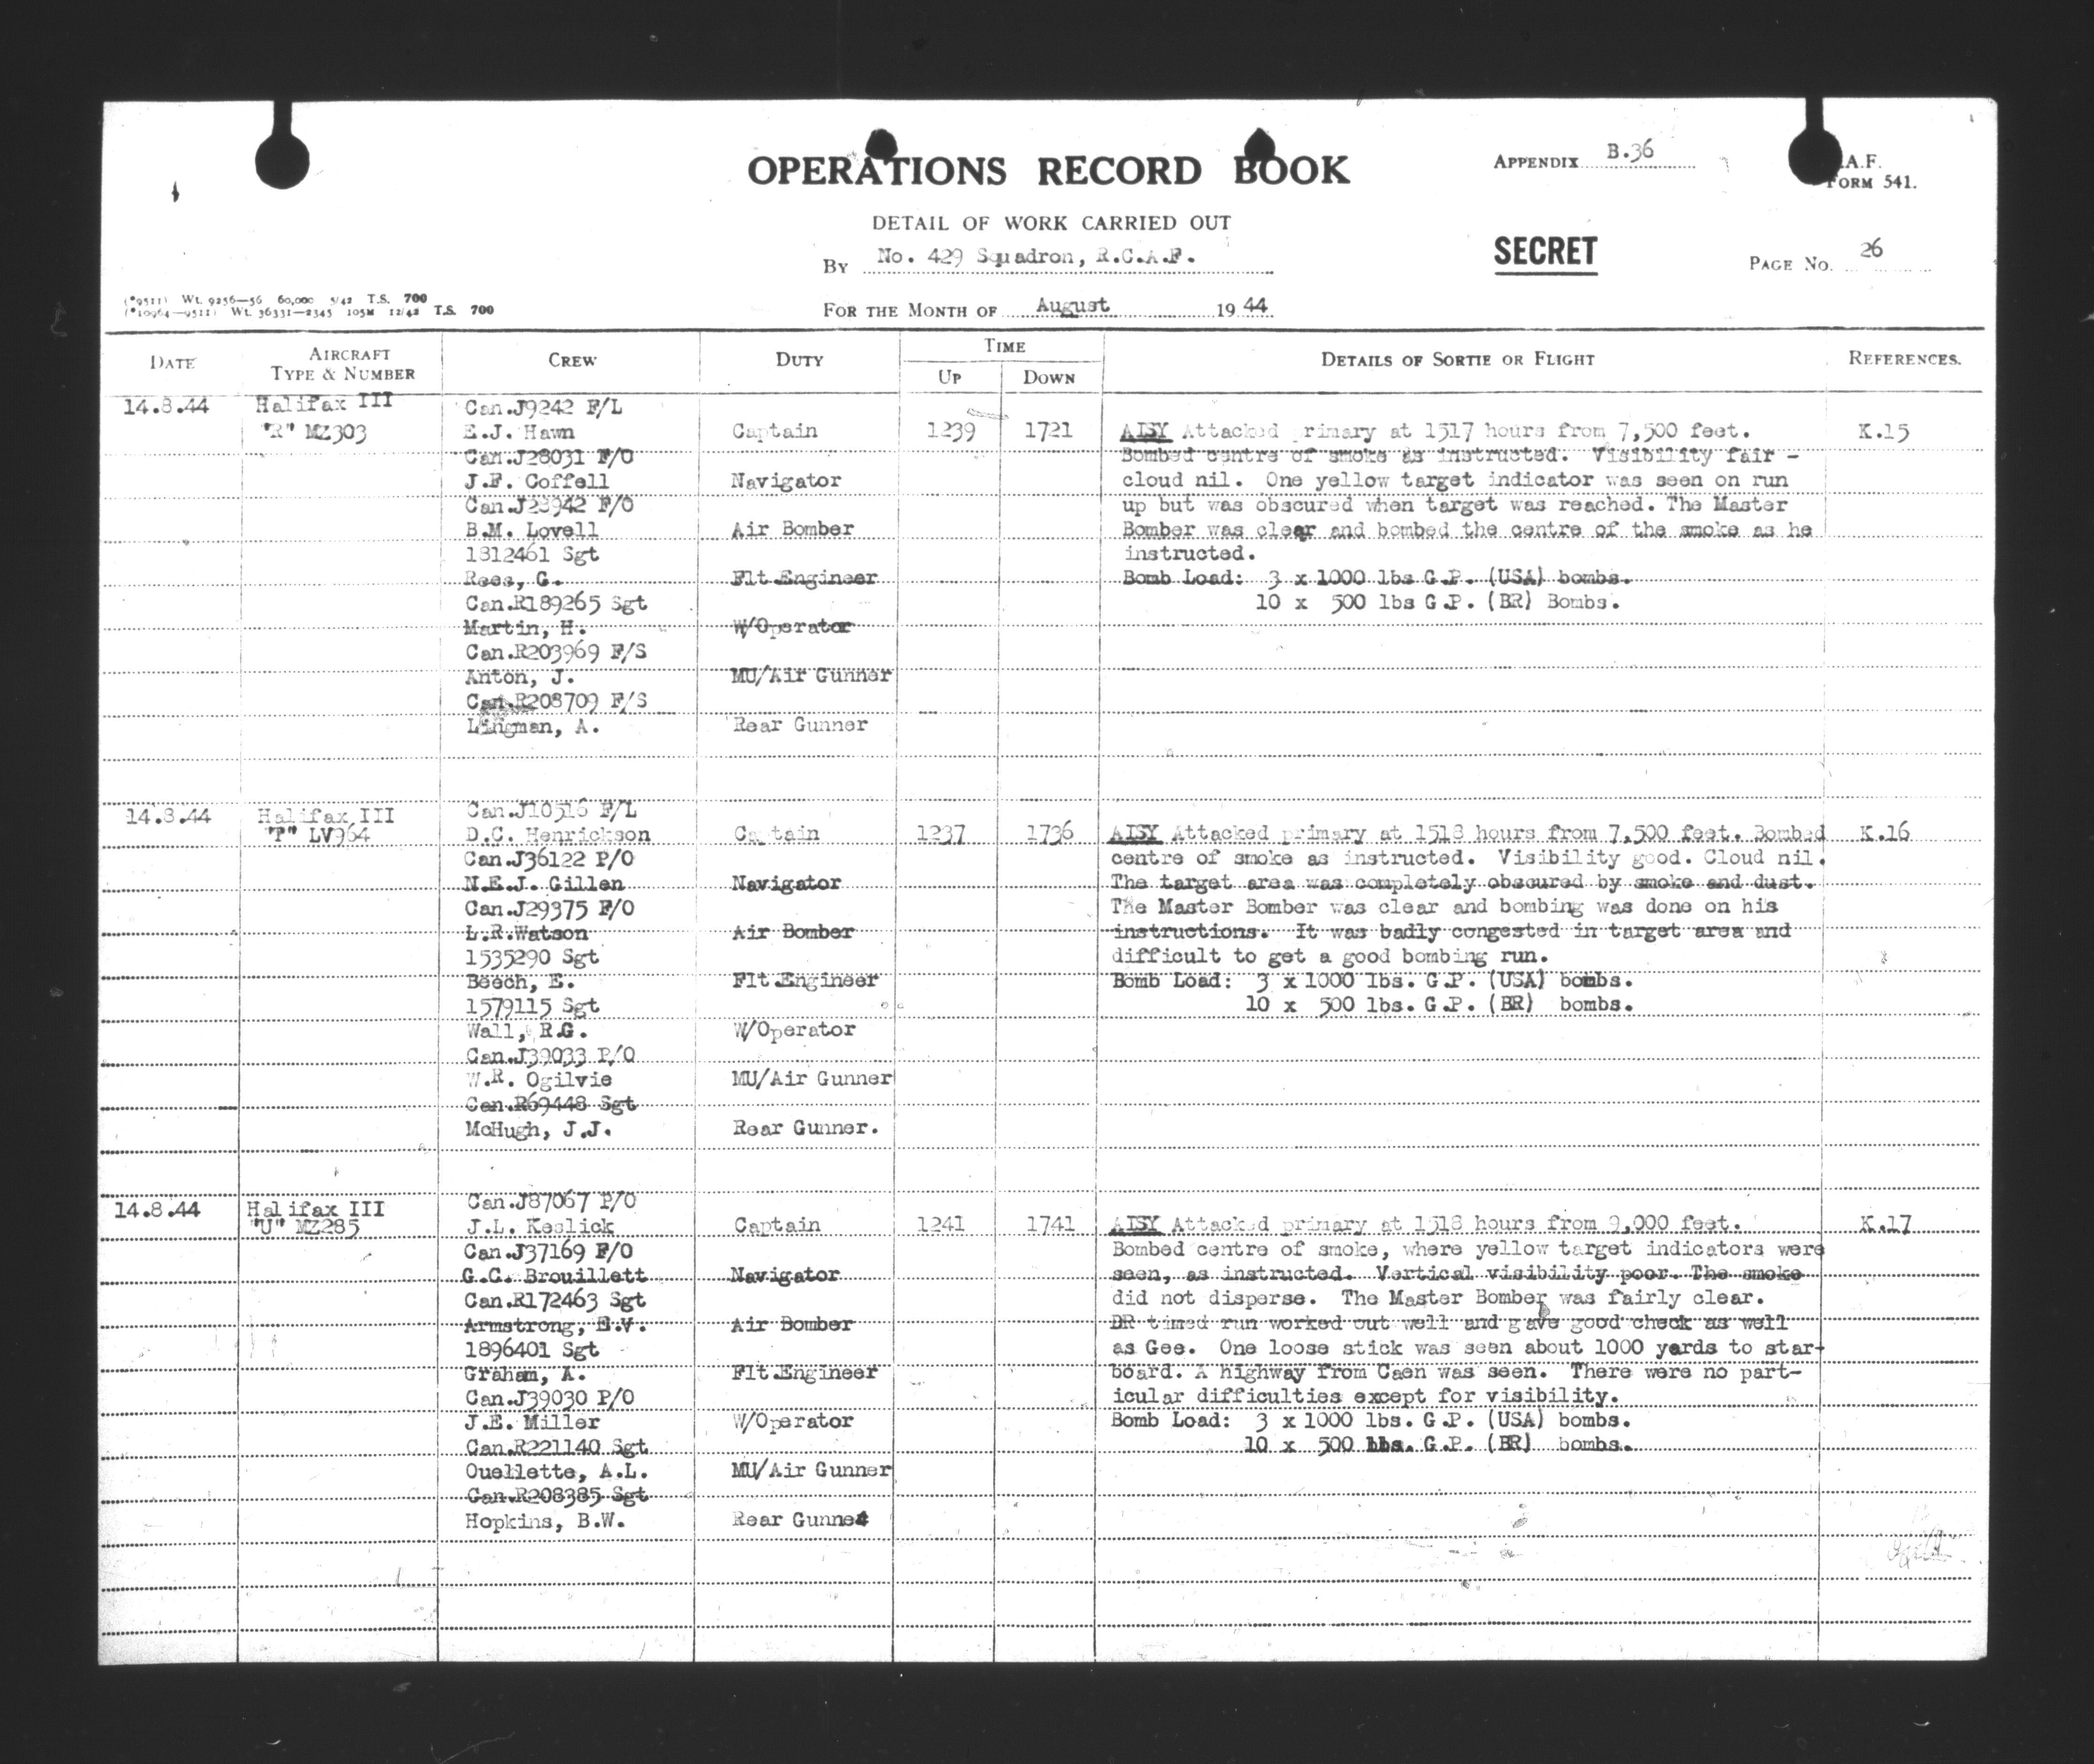 OPERATIONS RECORD BOOK
APPENDIX B.36
.A.F.
FORM 541.
DETAIL OF WORK CARRIED OUT
By No. 429 Squadron, R.C.A.F.
SECRET
PAGE No. 26
(*9511) Wt. 9256—56 60,000 5/42 T.S. 700
(*10964—9511) Wt. 36331—2345 105M 12/42 T.S. 700
FOR THE MONTH OF August 1944
DATE
AIRCRAFT TYPE & NUMBER
CREW
DUTY
TIME
UP
DOWN
DETAILS OF SORTIE OR FLIGHT
REFERENCES.
14.8.44 Halifax III Can.J9242 F/L
"R" MZ303 E.J. Hawn Captain 1239 1721 AISY Attacked rimary at 1517 hours from 7,500 feet. K.15
Can.J28031 F/O Bombed centre of smoke as instructed. Visibility fair -
J.F. Coffell Navigator cloud nil. One yellow target indicator was seen on run
Can.J28942 F/O up but was obscured when target was reached. The Master
B.M. Lovell Air Bomber Bomber was clear and bombed the centre of the smoke as he
1812461 Sgt instructed.
Rees, G. Flt.Engineer Bomb Load: 3 x 1000 lbs G.P. (USA) bombs.
Can.R189265 Sgt 10 x 500 lbs G.P. (BR) Bombs.
Martin, H. W/Operator
Can.R203969 F/S
Anton, J. MU/Air Gunner
Can.R208709 F/S
Lingman, A. Rear Gunner
14.8.44 Halifax III Can.J10516 F/L
"P" LV964 D.C. Henrickson Captain 1237 1736 AISY Attacked primary at 1518 hours from 7,500 feet. Bombed K.16
Can.J36122 P/O centre of smoke as instructed. Visibility good. Cloud nil.
N.E.J. Gillen Navigator The target area was completely obscured by smoke and dust.
Can.J29375 F/O The Master Bomber was clear and bombing was done on his
L.R.Watson Air Bomber instructions. It was badly congested in target area and
1535290 Sgt difficult to get a good bombing run.
Beech, E. Flt.Engineer Bomb Load: 3 x 1000 lbs. G.P. (USA) bombs.
1579115 Sgt 10 x 500 lbs. G.P. (BR) bombs.
Wall, R.G. W/Operator
Can.J39033 P/O
W.R. Ogilvie MU/Air Gunner
Can.R69448 Sgt
McHugh, J.J. Rear Gunner.
14.8.44 Halifax III Can.J87067 P/O
"U" MZ285 J.L. Keslick Captain 1241 1741 AISY Attacked primary at 1518 hours from 9,000 feet. K.17
Can.J37169 F/O Bombed centre of smoke, where yellow target indicators were
G.C. Brouillett Navigator seen, as instructed. Vertical visibility poor. The smoke
Can.R172463 Sgt did not disperse. The Master Bomber was fairly clear.
Armstrong, E.V. Air Bomber DR timed run worked out well and gave good check as well
1896401 Sgt as Gee. One loose stick was seen about 1000 yards to star-
Graham, A. Flt.Engineer board. A highway from Caen was seen. There were no part-
Can.J39030 P/O icular difficulties except for visibility.
J.E. Miller W/Operator Bomb Load: 3 x 1000 lbs. G.P. (USA) bombs.
Can.R221140 Sgt 10 x 500 lbs. G.P. (BR) bombs.
Ouellette, A.L. MU/Air Gunner
Can.R208385 Sgt
Hopkins, B.W. Rear Gunner